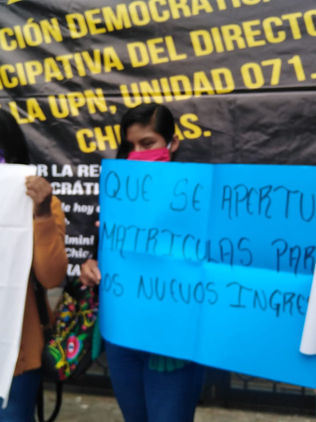 CIÓN DEMOCRÁTICA
CIPATIVA DEL DIRECTO
LA UPN, UNIDAD 071.
CHIAPAS.
POR LA RE
CRÁTI
de hoy
QUE SE APERTU
MATRICULAS PAR
OS NUEVOS INGRE